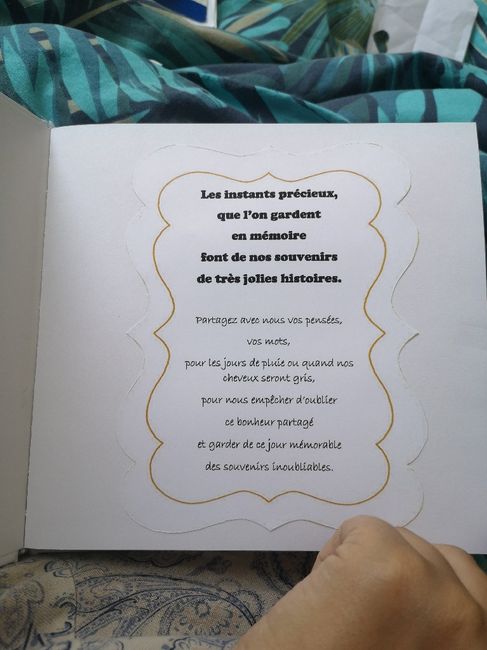 Les instants précieux,
que l'on gardent
en mémoire
font de nos souvenirs
de très jolies histoires.
Partagez avec nous vos pensées,
vos mots,
pour les jours de pluie ou quand nos
cheveux seront gris,
pour nous empêcher d'oublier
ce bonheur partagé
et garder de ce jour mémorable
des souvenirs inoubliables.